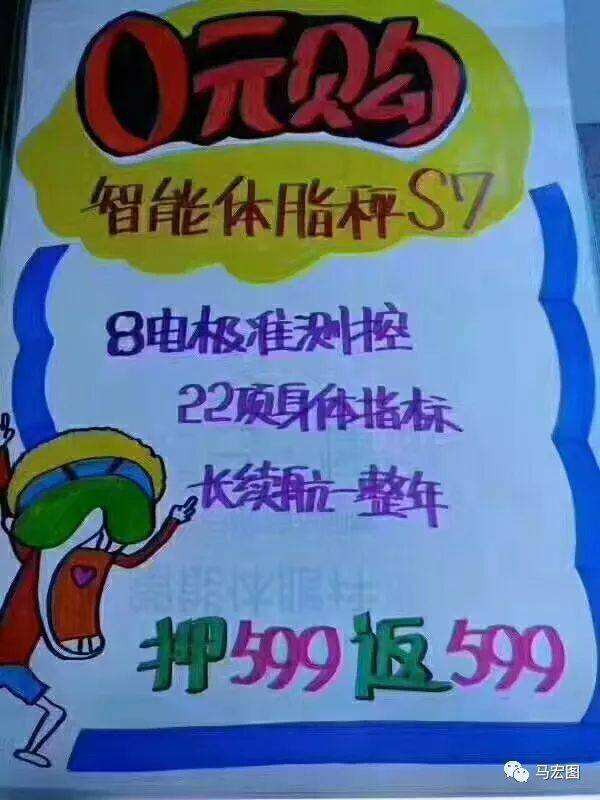 0元购
智能体脂秤S7
8电极准测控
22项身体指标
长续航一整年
押599返599
马宏图